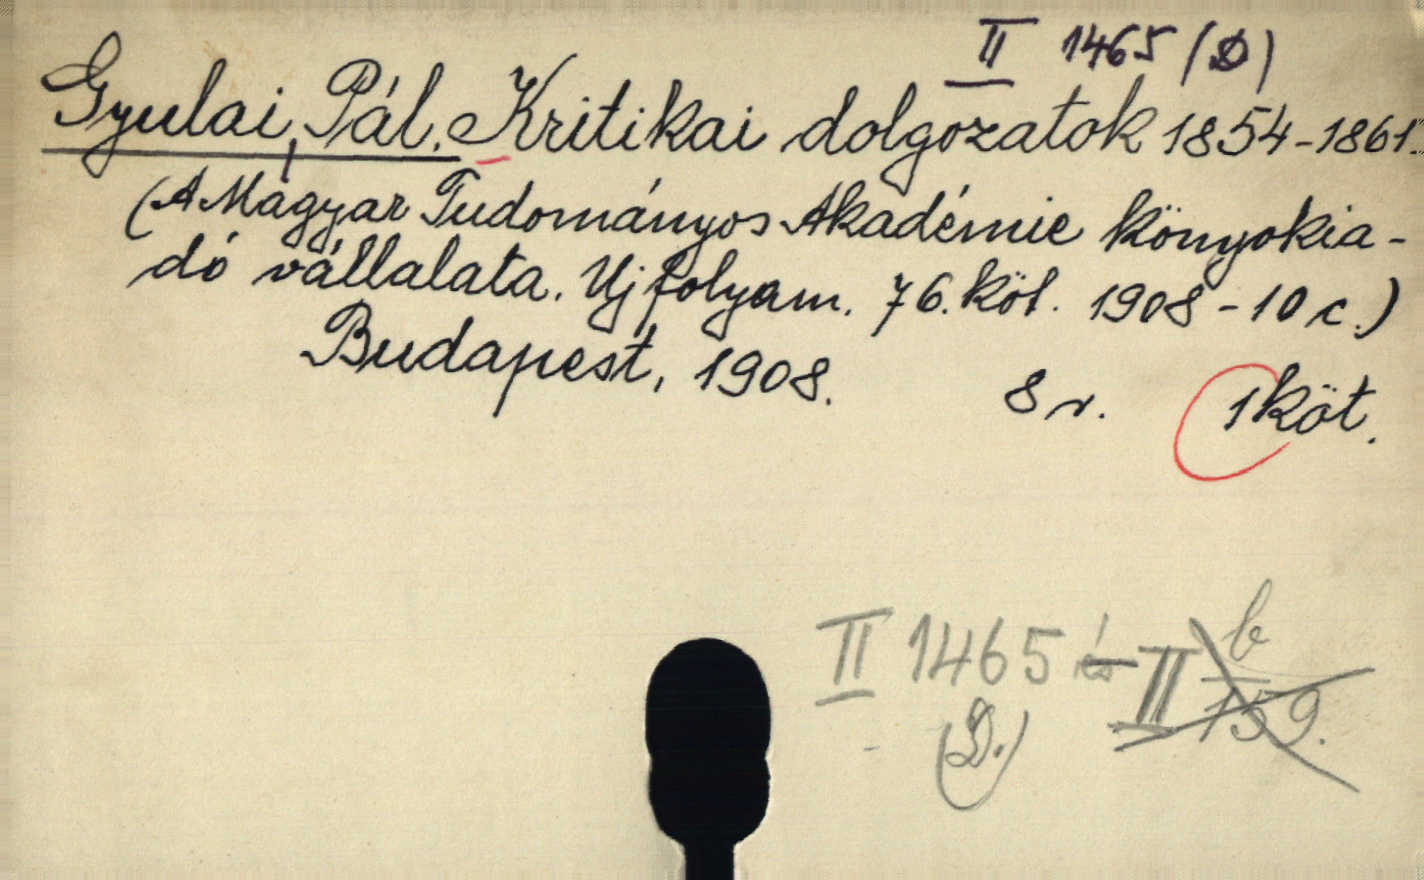 II 1465 (D)
Gyulai, Pál. Kritikai dolgozatok 1854-1861.
(A Magyar Tudományos Akadémie könyokia-
dó vállalata. Uj folyam. 76. köt. 1908-10 c.)
Budapest, 1908. 8 r. 1 köt.
II 1465 és II b
(D.) 159.